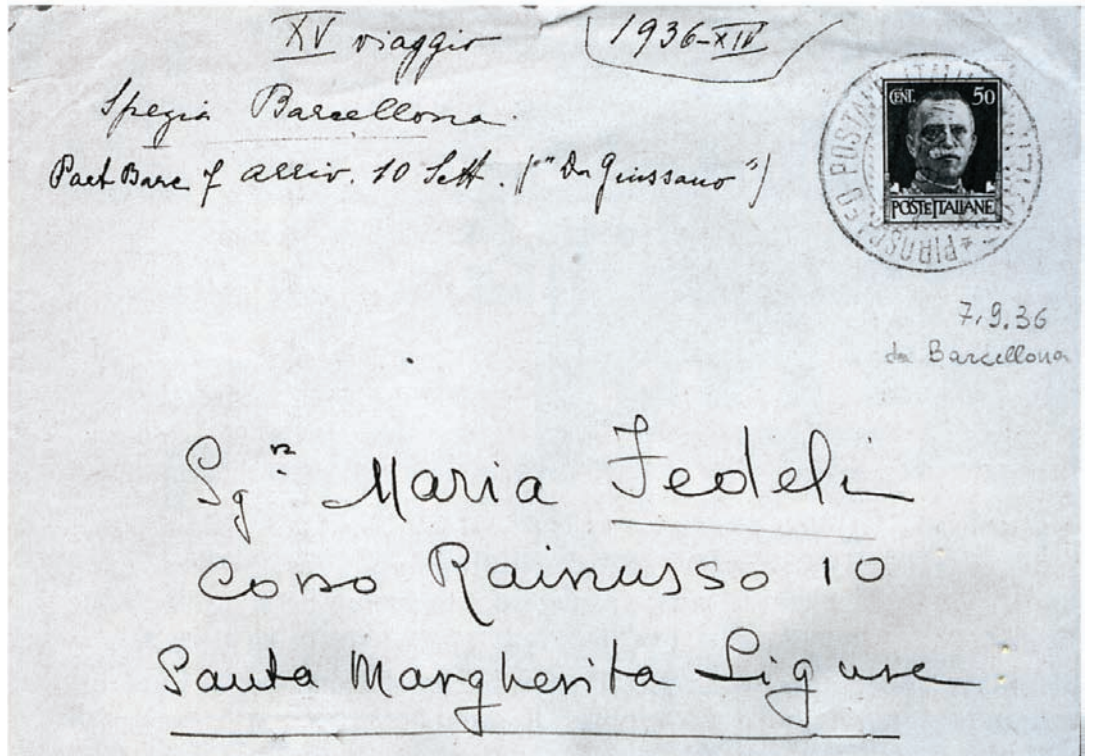 XV viaggio
1936-XIV
Spezia Barcellona.
Part Barc 7 arriv. 10 Sett. ("Da Giussano")
CENT. 50
POSTE ITALIANE
PIROSCAFO POSTALE ITALIANO
7.9.36
da Barcellona
Sg.ra Maria Fedeli
Corso Rainusso 10
Santa Margherita Ligure